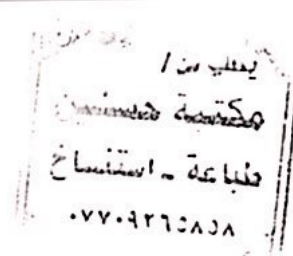 يطلب من /
مكتبة
طباعة - استنساخ
٠٧٧٠٩٢٦٥٨٥٨